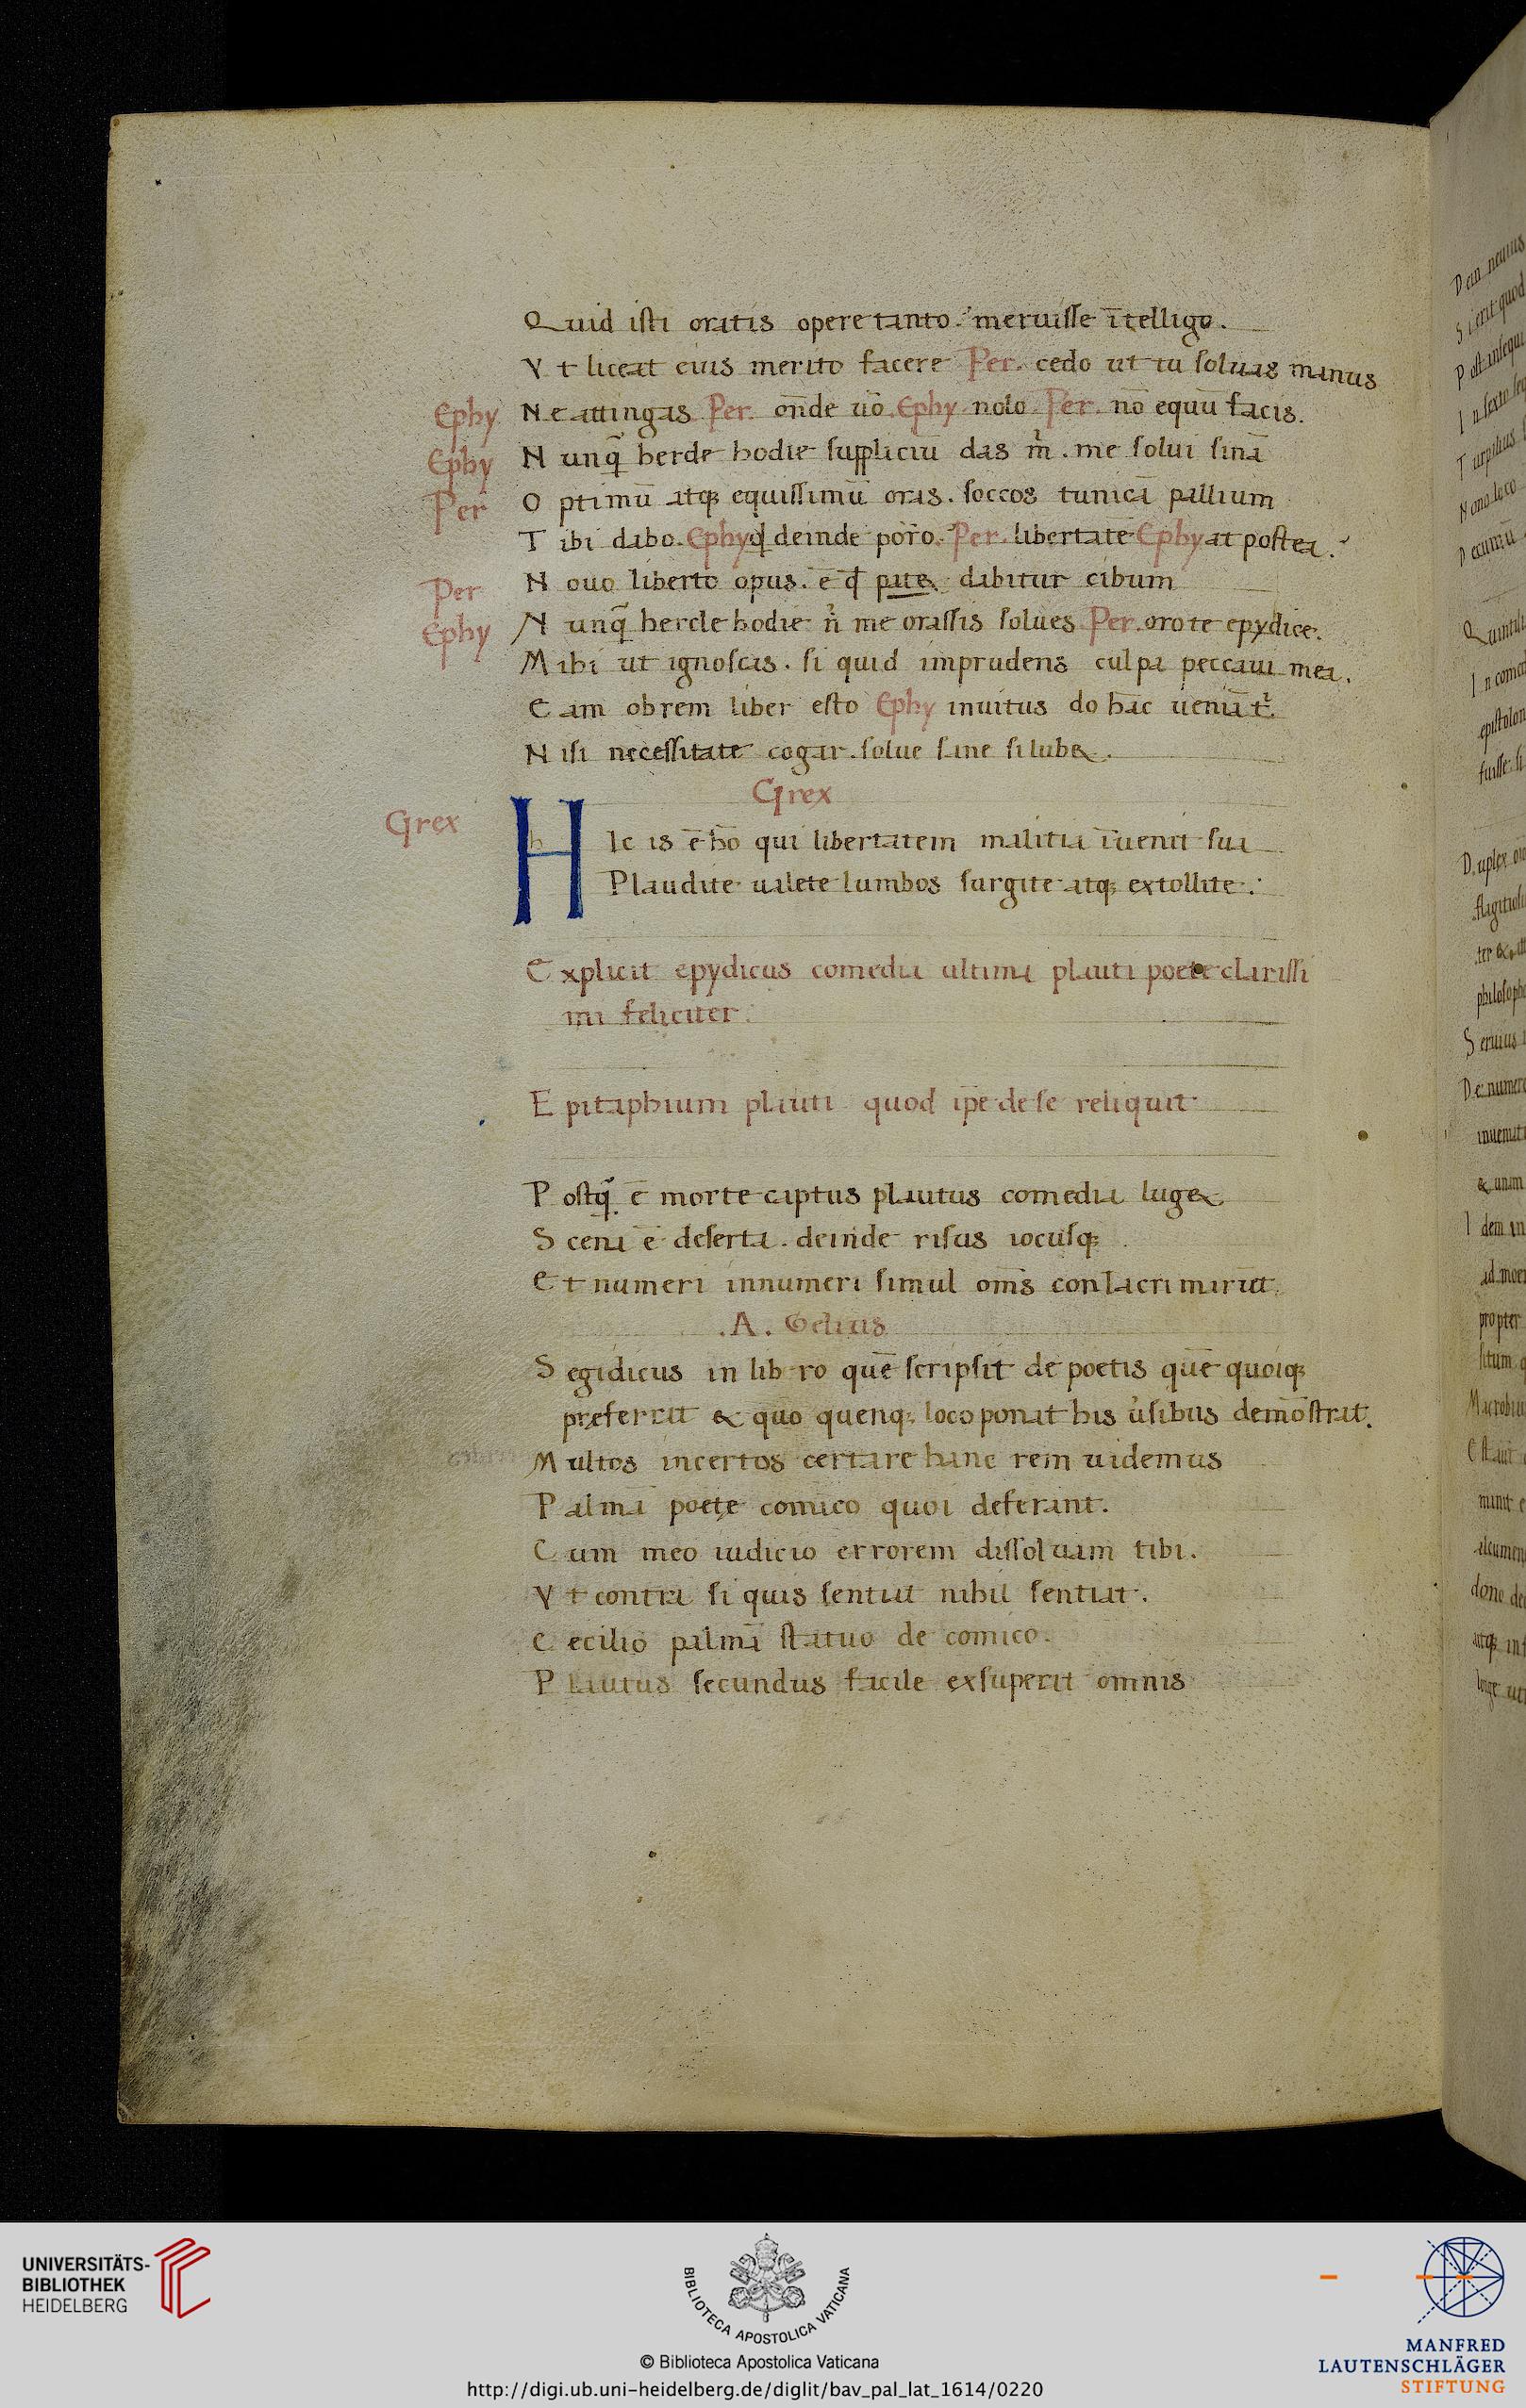 Quid isti oratis opere tanto.? meruisse ītelligo.
Vt liceat eius merito facere Per. cedo ut tu soluas manus
Ephy Ne attingas Per. on̄de uō. Ephy nolo. Per. nō equū facis.
Ephy Nunq̄ herde hodie suppliciū das m̄. me solui sinā
Per Optimū atq; equissimū oras. soccos tunicā pallium
Tibi dabo. Ephy qd̄ deinde porro. Per. libertatē Ephy at postea.?
Per Nouo liberto opus. ē qd̄ patet dabitur cibum
Ephy Nunq̄ hercle hodie n̄ me orassis solues Per. oro te epydice.
Mihi ut ignoscas. si quid imprudens culpa peccaui mea.
Eam obrem liber esto Ephy inuitus do hāc ueniā t̄.
Nisi necessitate cogar. solue sane si lubet.
Grex
Grex HIc is ē hō qui libertatem malitia īuenit sua
Plaudite ualete lumbos surgite atq; extollite.
Explicit epydicus comedia ultima plauti poete clarissi
mi feliciter.
Epitaphium plauti quod ip̄e de se reliquit
Postq̄. ē morte captus plautus comedia luget
Scena ē deserta. deinde risus iocusq;
Et numeri innumeri simul om̄s conlacrimarūt.
.A. Gelius
Segidicus in libro quē scripsit de poetis quē quoiq;
preferrat & quō quenq; loco ponat his u̓sibus demōstrat.
Multos incertos certare hanc rem uidemus
Palmā poetę comico quoi deferant.
Cum meo iudicio errorem dissoluam tibi.
Vt contra si quis sentiat nihil sentiat.
Cecilio palmā statuo de comico.
Plautus secundus facile exsuperat omnis
UNIVERSITÄTS-
BIBLIOTHEK
HEIDELBERG
BIBLIOTECA APOSTOLICA VATICANA
© Biblioteca Apostolica Vaticana
http://digi.ub.uni-heidelberg.de/diglit/bav_pal_lat_1614/0220
MANFRED
LAUTENSCHLÄGER
STIFTUNG